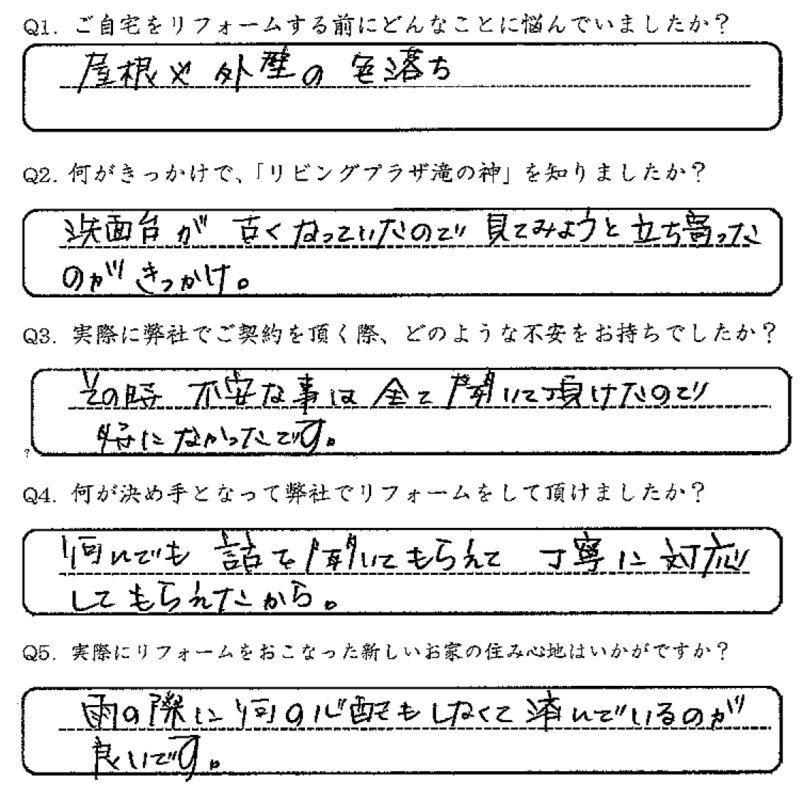 Q1. ご自宅をリフォームする前にどんなことに悩んでいましたか？
屋根や外壁の色落ち
Q2. 何がきっかけで、「リビングプラザ滝の神」を知りましたか？
洗面台が古くなっていたので見てみようと立ち寄った
のがきっかけ。
Q3. 実際に弊社でご契約を頂く際、どのような不安をお持ちでしたか？
その時不安な事は全て聞いて頂けたので
特になかったです。
?
Q4. 何が決め手となって弊社でリフォームをして頂けましたか？
何んでも話を聞いてもらえて丁寧に対応
してもらえたから。
Q5. 実際にリフォームをおこなった新しいお家の住み心地はいかがですか？
雨の際に何の心配もしなくて済んでいるのが
良いです。